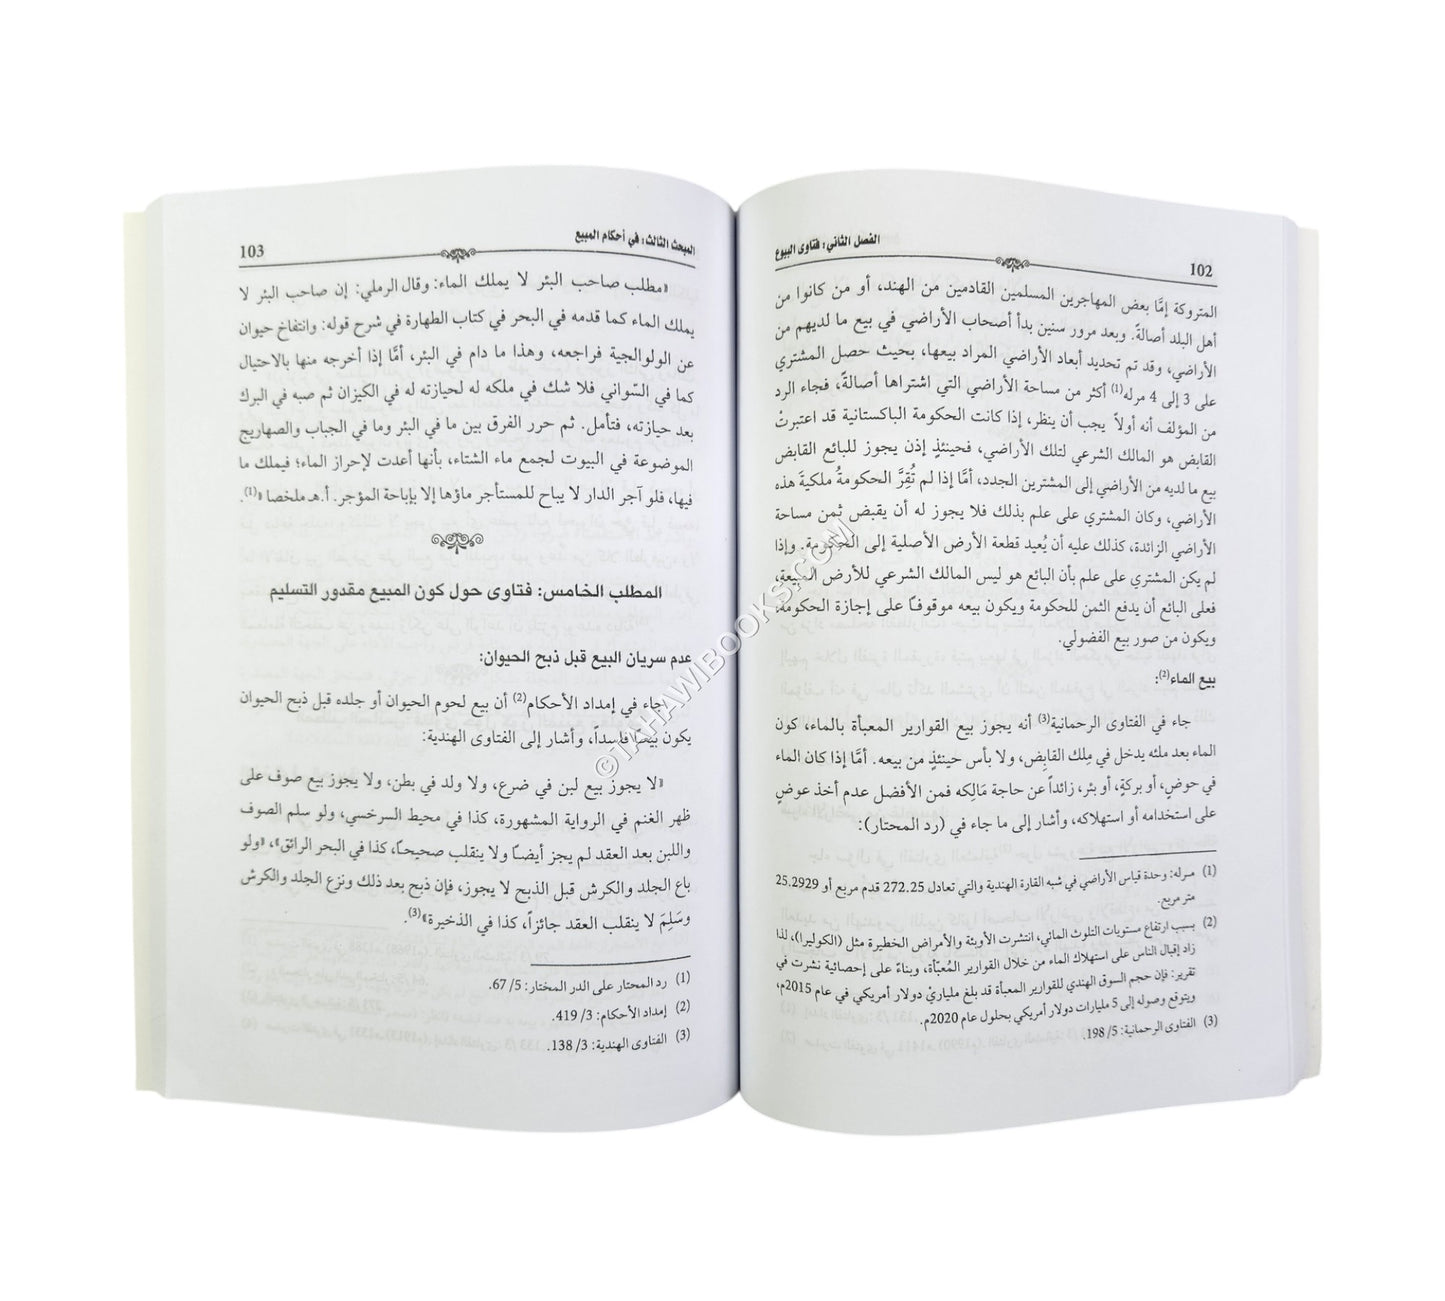 الفصل الثاني: فتاوى البيوع
102
المتروكة إمَّا بعض المهاجرين المسلمين القادمين من الهند، أو من كانوا من
أهل البلد أصالةً. وبعد مرور سنين بدأ أصحاب الأراضي في بيع ما لديهم من
الأراضي، وقد تم تحديد أبعاد الأراضي المراد بيعها، بحيث حصل المشتري
على 3 إلى 4 مرله(1) أكثر من مساحة الأراضي التي اشتراها أصالةً، فجاء الرد
من المؤلف أنه أولاً يجب أن ينظر، إذا كانت الحكومة الباكستانية قد اعتبرتْ
القابض هو المالك الشرعي لتلك الأراضي، فحينئذٍ إذن يجوز للبائع القابض
بيع ما لديه من الأراضي إلى المشترين الجدد، أمَّا إذا لم تُقِرَّ الحكومةُ ملكيةَ هذه
الأراضي، وكان المشتري على علم بذلك فلا يجوز له أن يقبض ثمن مساحة
الأراضي الزائدة، كذلك عليه أن يُعيد قطعة الأرض الأصلية إلى الحكومة. وإذا
لم يكن المشتري على علم بأن البائع هو ليس المالك الشرعي للأرض المبيعة،
فعلى البائع أن يدفع الثمن للحكومة ويكون بيعه موقوفًا على إجازة الحكومة،
ويكون من صور بيع الفضولي.
بيع الماء(2):
جاء في الفتاوى الرحمانية(3) أنه يجوز بيع القوارير المعبأة بالماء، كون
الماء بعد ملئه يدخل في مِلك القابِض، ولا بأس حينئذٍ من بيعه. أمَّا إذا كان الماء
في حوضٍ، أو بركةٍ، أو بئر، زائداً عن حاجة مَالِكه فمن الأفضل عدم أخذ عوضٍ
على استخدامه أو استهلاكه، وأشار إلى ما جاء في (رد المحتار):
(1) مرله: وحدة قياس الأراضي في شبه القارة الهندية والتي تعادل 272.25 قدم مربع أو 25.2929
متر مربع.
(2) بسبب ارتفاع مستويات التلوث المائي، انتشرت الأوبئة والأمراض الخطيرة مثل (الكوليرا)، لذا
زاد إقبال الناس على استهلاك الماء من خلال القوارير المُعبّأة، وبناءً على إحصائية نشرت في
تقرير: فإن حجم السوق الهندي للقوارير المعبأة قد بلغ ملياريْ دولار أمريكي في عام 2015م،
ويتوقع وصوله إلى 5 مليارات دولار أمريكي بحلول عام 2020م.
(3) الفتاوى الرحمانية: 5/ 198.
المبحث الثالث: في أحكام المبيع
103
«مطلب صاحب البئر لا يملك الماء: وقال الرملي: إن صاحب البئر لا
يملك الماء كما قدمه في البحر في كتاب الطهارة في شرح قوله: وانتفاخ حيوان
عن الولوالجية فراجعه، وهذا ما دام في البئر، أمَّا إذا أخرجه منها بالاحتيال
كما في السّواني فلا شك في ملكه له لحيازته له في الكيزان ثم صبه في البرك
بعد حيازته، فتأمل. ثم حرر الفرق بين ما في البئر وما في الجباب والصهاريج
الموضوعة في البيوت لجمع ماء الشتاء، بأنها أعدت لإحراز الماء؛ فيملك ما
فيها، فلو آجر الدار لا يباح للمستأجر ماؤها إلا بإباحة المؤجر. أ.هـ ملخصا»(1).
المطلب الخامس: فتاوى حول كون المبيع مقدور التسليم
عدم سريان البيع قبل ذبح الحيوان:
جاء في إمداد الأحكام(2) أن بيع لحوم الحيوان أو جلده قبل ذبح الحيوان
يكون بيعاً فاسداً، وأشار إلى الفتاوى الهندية:
«لا يجوز بيع لبن في ضرع، ولا ولد في بطن، ولا يجوز بيع صوف على
ظهر الغنم في الرواية المشهورة، كذا في محيط السرخسي، ولو سلم الصوف
واللبن بعد العقد لم يجز أيضًا ولا ينقلب صحيحًا، كذا في البحر الرائق»، «ولو
باع الجلد والكرش قبل الذبح لا يجوز، فإن ذبح بعد ذلك ونزع الجلد والكرش
وسَلِمَ لا ينقلب العقد جائزاً، كذا في الذخيرة»(3).
(1) رد المحتار على الدر المختار: 5/ 67.
(2) إمداد الأحكام: 3/ 419.
(3) الفتاوى الهندية: 3/ 138.
©TAHAWIBOOKS.COM